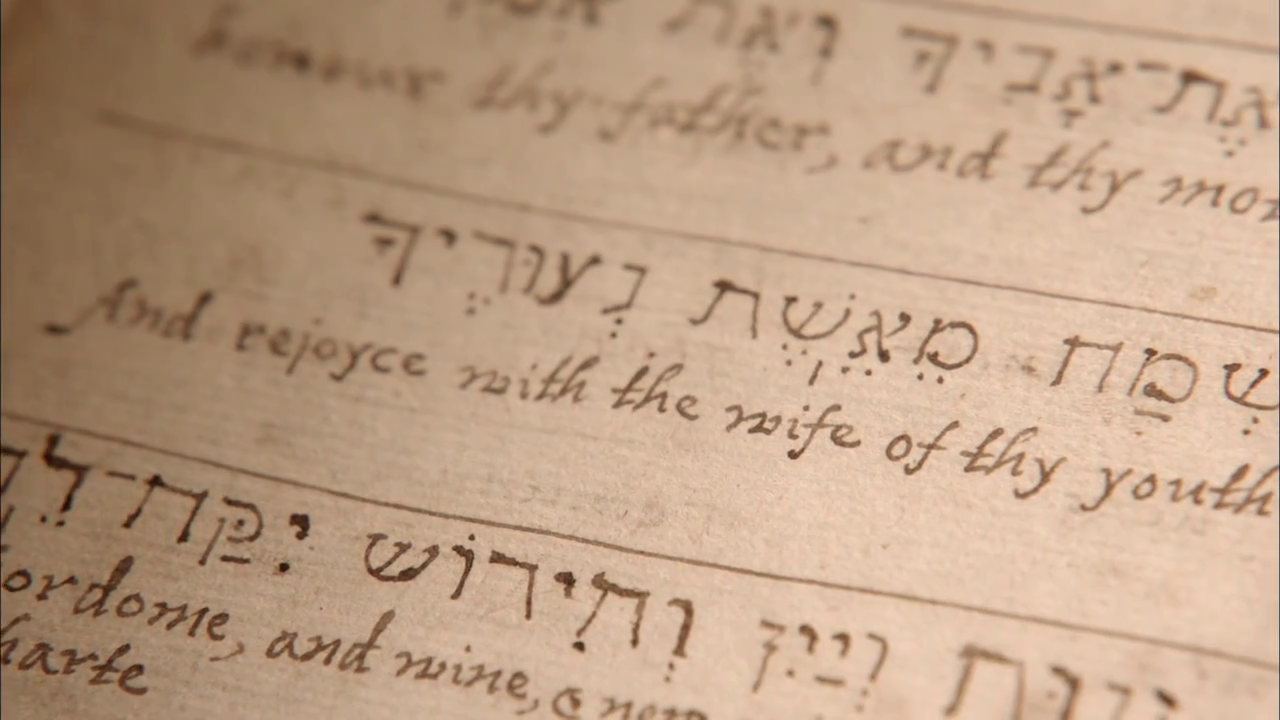 אֶת־אָבִיךָ וְאֶת
honour thy father, and thy mo
שְׂמַח מֵאֵשֶׁת נְעוּרֶיךָ
And rejoyce with the wife of thy youth
וְיַיִן וְתִירוֹשׁ יִקַּח־לֵב
ordome, and wine, & new
harte